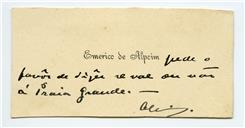 Emerico de Alpoim pede o
favôr de dizer se vae ou não
á Praia Grande. —